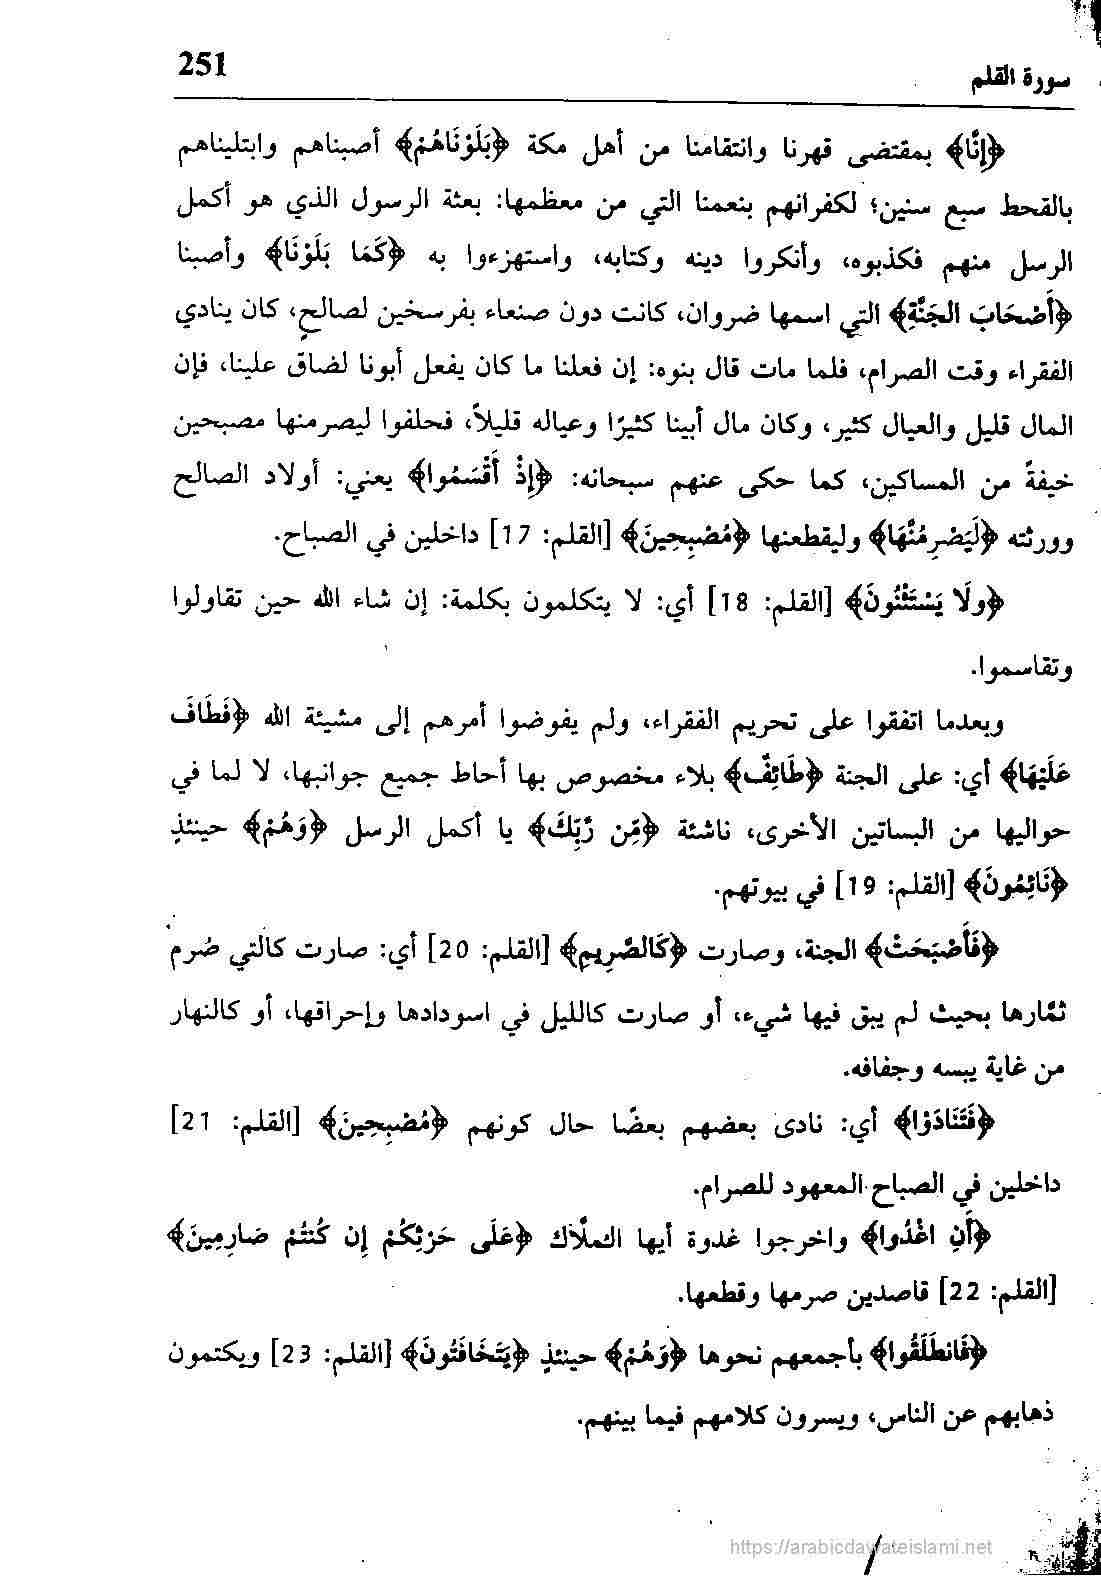 251
سورة القلم
﴿إِنَّا﴾ بمقتضى قهرنا وانتقامنا من أهل مكة ﴿بَلَوْنَاهُمْ﴾ أصبناهم وابتليناهم
بالقحط سبع سنين؛ لكفرانهم بنعمنا التي من معظمها: بعثة الرسول الذي هو أكمل
الرسل منهم فكذبوه، وأنكروا دينه وكتابه، واستهزءوا به ﴿كَمَا بَلَوْنَا﴾ وأصبنا
﴿أَصْحَابَ الجَنَّةِ﴾ التي اسمها ضروان، كانت دون صنعاء بفرسخين لصالحٍ، كان ينادي
الفقراء وقت الصرام، فلما مات قال بنوه: إن فعلنا ما كان يفعل أبونا لضاق علينا، فإن
المال قليل والعيال كثير، وكان مال أبينا كثيرًا وعياله قليلاً، فحلفوا ليصرمنها مصبحين
خيفةً من المساكين، كما حكى عنهم سبحانه: ﴿إِذْ أَقْسَمُوا﴾ يعني: أولاد الصالح
وورثته ﴿لَيَصْرِمُنَّهَا﴾ وليقطعنها ﴿مُصْبِحِينَ﴾ [القلم: 17] داخلين في الصباح.
﴿ولَا يَسْتَثْنُونَ﴾ [القلم: 18] أي: لا يتكلمون بكلمة: إن شاء الله حين تقاولوا
وتقاسموا.
وبعدما اتفقوا على تحريم الفقراء، ولم يفوضوا أمرهم إلى مشيئة الله ﴿فَطَافَ
عَلَيْهَا﴾ أي: على الجنة ﴿طَائِفٌ﴾ بلاء مخصوص بها أحاط جميع جوانبها، لا لما في
حواليها من البساتين الأخرى، ناشئة ﴿مِّن رَّبِّكَ﴾ يا أكمل الرسل ﴿وَهُمْ﴾ حينئذٍ
﴿نَائِمُونَ﴾ [القلم: 19] في بيوتهم.
﴿فَأَصْبَحَتْ﴾ الجنة، وصارت ﴿كَالصَّرِيمِ﴾ [القلم: 20] أي: صارت كالتي صُرم
ثمَّارها بحيث لم يبق فيها شيء، أو صارت كالليل في اسودادها وإحراقها، أو كالنهار
من غاية يبسه وجفافه.
﴿فَتَنَادَوْا﴾ أي: نادى بعضهم بعضًا حال كونهم ﴿مُصْبِحِينَ﴾ [القلم: 21]
داخلين في الصباح المعهود للصرام.
﴿أَنِ اغْدُوا﴾ واخرجوا غدوة أيها الملَّاك ﴿عَلَى حَرْثِكُمْ إِن كُنتُمْ صَارِمِينَ﴾
[القلم: 22] قاصدين صرمها وقطعها.
﴿فَانطَلَقُوا﴾ بأجمعهم نحوها ﴿وَهُمْ﴾ حينئذٍ ﴿يَتَخَافَتُونَ﴾ [القلم: 23] ويكتمون
ذهابهم عن الناس، ويسرون كلامهم فيما بينهم.
https://arabicdawateislami.net